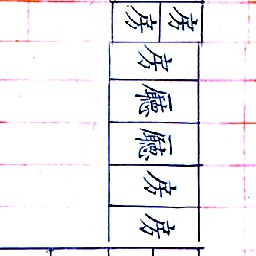 房 房
房
廳
廳
房
房